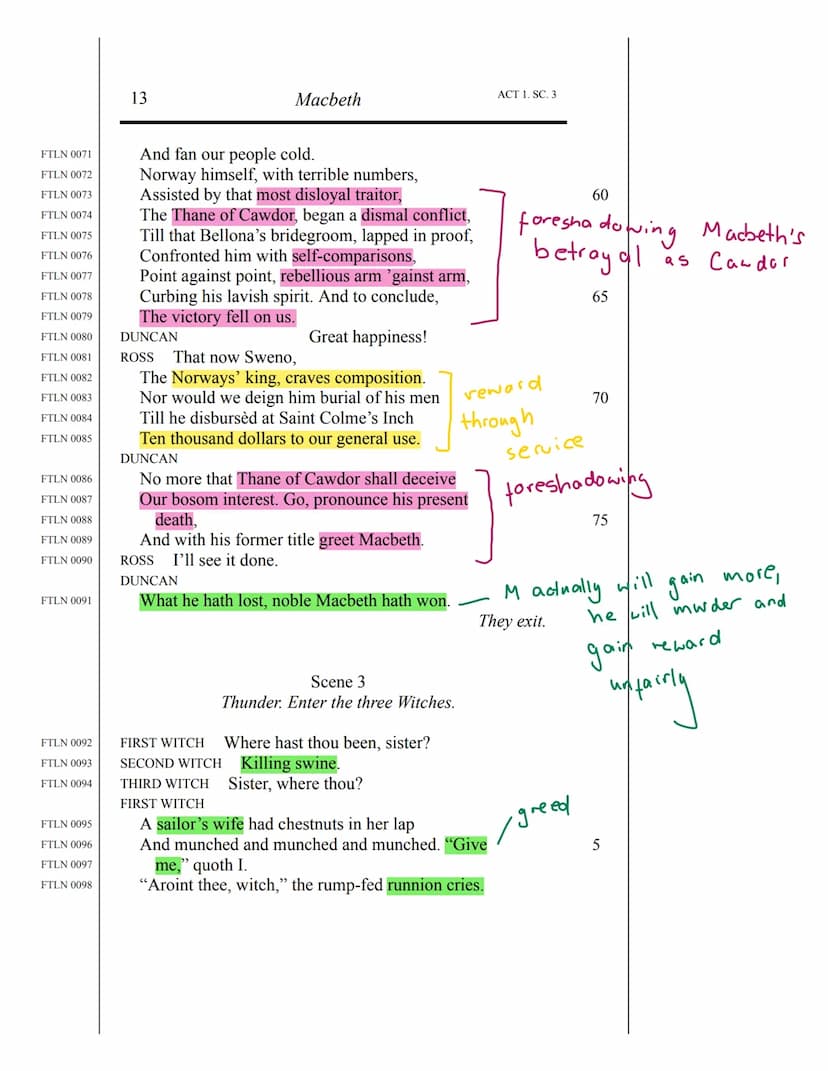 13 Macbeth ACT 1. SC. 3
FTLN 0071 And fan our people cold.
FTLN 0072 Norway himself, with terrible numbers,
FTLN 0073 Assisted by that most disloyal traitor, 60
FTLN 0074 The Thane of Cawdor, began a dismal conflict,
FTLN 0075 Till that Bellona’s bridegroom, lapped in proof,
FTLN 0076 Confronted him with self-comparisons,
FTLN 0077 Point against point, rebellious arm ’gainst arm,
FTLN 0078 Curbing his lavish spirit. And to conclude, 65
FTLN 0079 The victory fell on us.
foreshadowing Macbeth's
betrayal as Cawdor
FTLN 0080 DUNCAN Great happiness!
FTLN 0081 ROSS That now Sweno,
FTLN 0082 The Norways’ king, craves composition.
FTLN 0083 Nor would we deign him burial of his men 70
FTLN 0084 Till he disbursèd at Saint Colme’s Inch
FTLN 0085 Ten thousand dollars to our general use.
reward
through
service
DUNCAN
FTLN 0086 No more that Thane of Cawdor shall deceive
FTLN 0087 Our bosom interest. Go, pronounce his present
FTLN 0088 death, 75
FTLN 0089 And with his former title greet Macbeth.
foreshadowing
FTLN 0090 ROSS I’ll see it done.
DUNCAN
FTLN 0091 What he hath lost, noble Macbeth hath won.
M actually will gain more,
he will murder and
gain reward
unfairly
They exit.
Scene 3
Thunder. Enter the three Witches.
FTLN 0092 FIRST WITCH Where hast thou been, sister?
FTLN 0093 SECOND WITCH Killing swine.
FTLN 0094 THIRD WITCH Sister, where thou?
FIRST WITCH
FTLN 0095 A sailor’s wife had chestnuts in her lap
FTLN 0096 And munched and munched and munched. “Give 5
FTLN 0097 me,” quoth I.
greed
FTLN 0098 “Aroint thee, witch,” the rump-fed runnion cries.